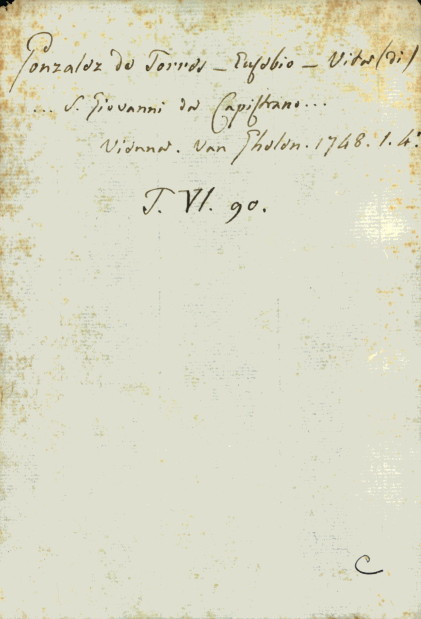 Gonzalez de Torres – Eusebio – Vita (di)
... S. Giovanni da Capistrano...
Vienna. van Ghelen. 1748. 1. 4°
T. VI. 90.
C